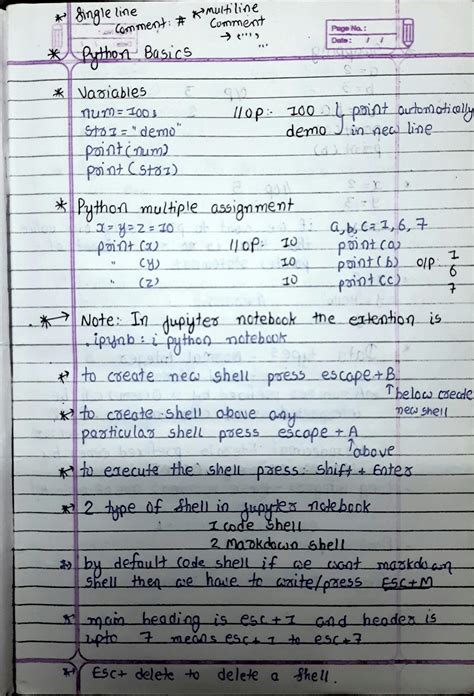 * Single line comment: #
* multiline comment → (''')
"'"
Page No.:
Date: / /
* Python Basics
* Variables
num = 100;
str1 = "demo"
print(num)
print(str1)
//op:- 100
demo
} print automatically in new line
* Python multiple assignment
x=y=z=10
print(x) //op: 10
" (y) 10
" (z) 10
a,b,c=1,6,7
print(a)
print(b) o/p: 1
print(c) 6
7
* → Note: In jupyter notebook the extention is
.ipynb: i python notebook
* to create new shell press escape+B
↑ below create new shell
* to create shell above any
particular shell press escape + A
↑ above
* to execute the shell press: shift + Enter
* 2 type of shell in jupyter notebook
1 code shell
2 Markdown shell
* by default code shell if we want markdown
shell then we have to write/press ESC+M
* main heading is esc+1 and header is
upto 7 means esc+1 to esc+7
* Esc+ delete to delete a shell.